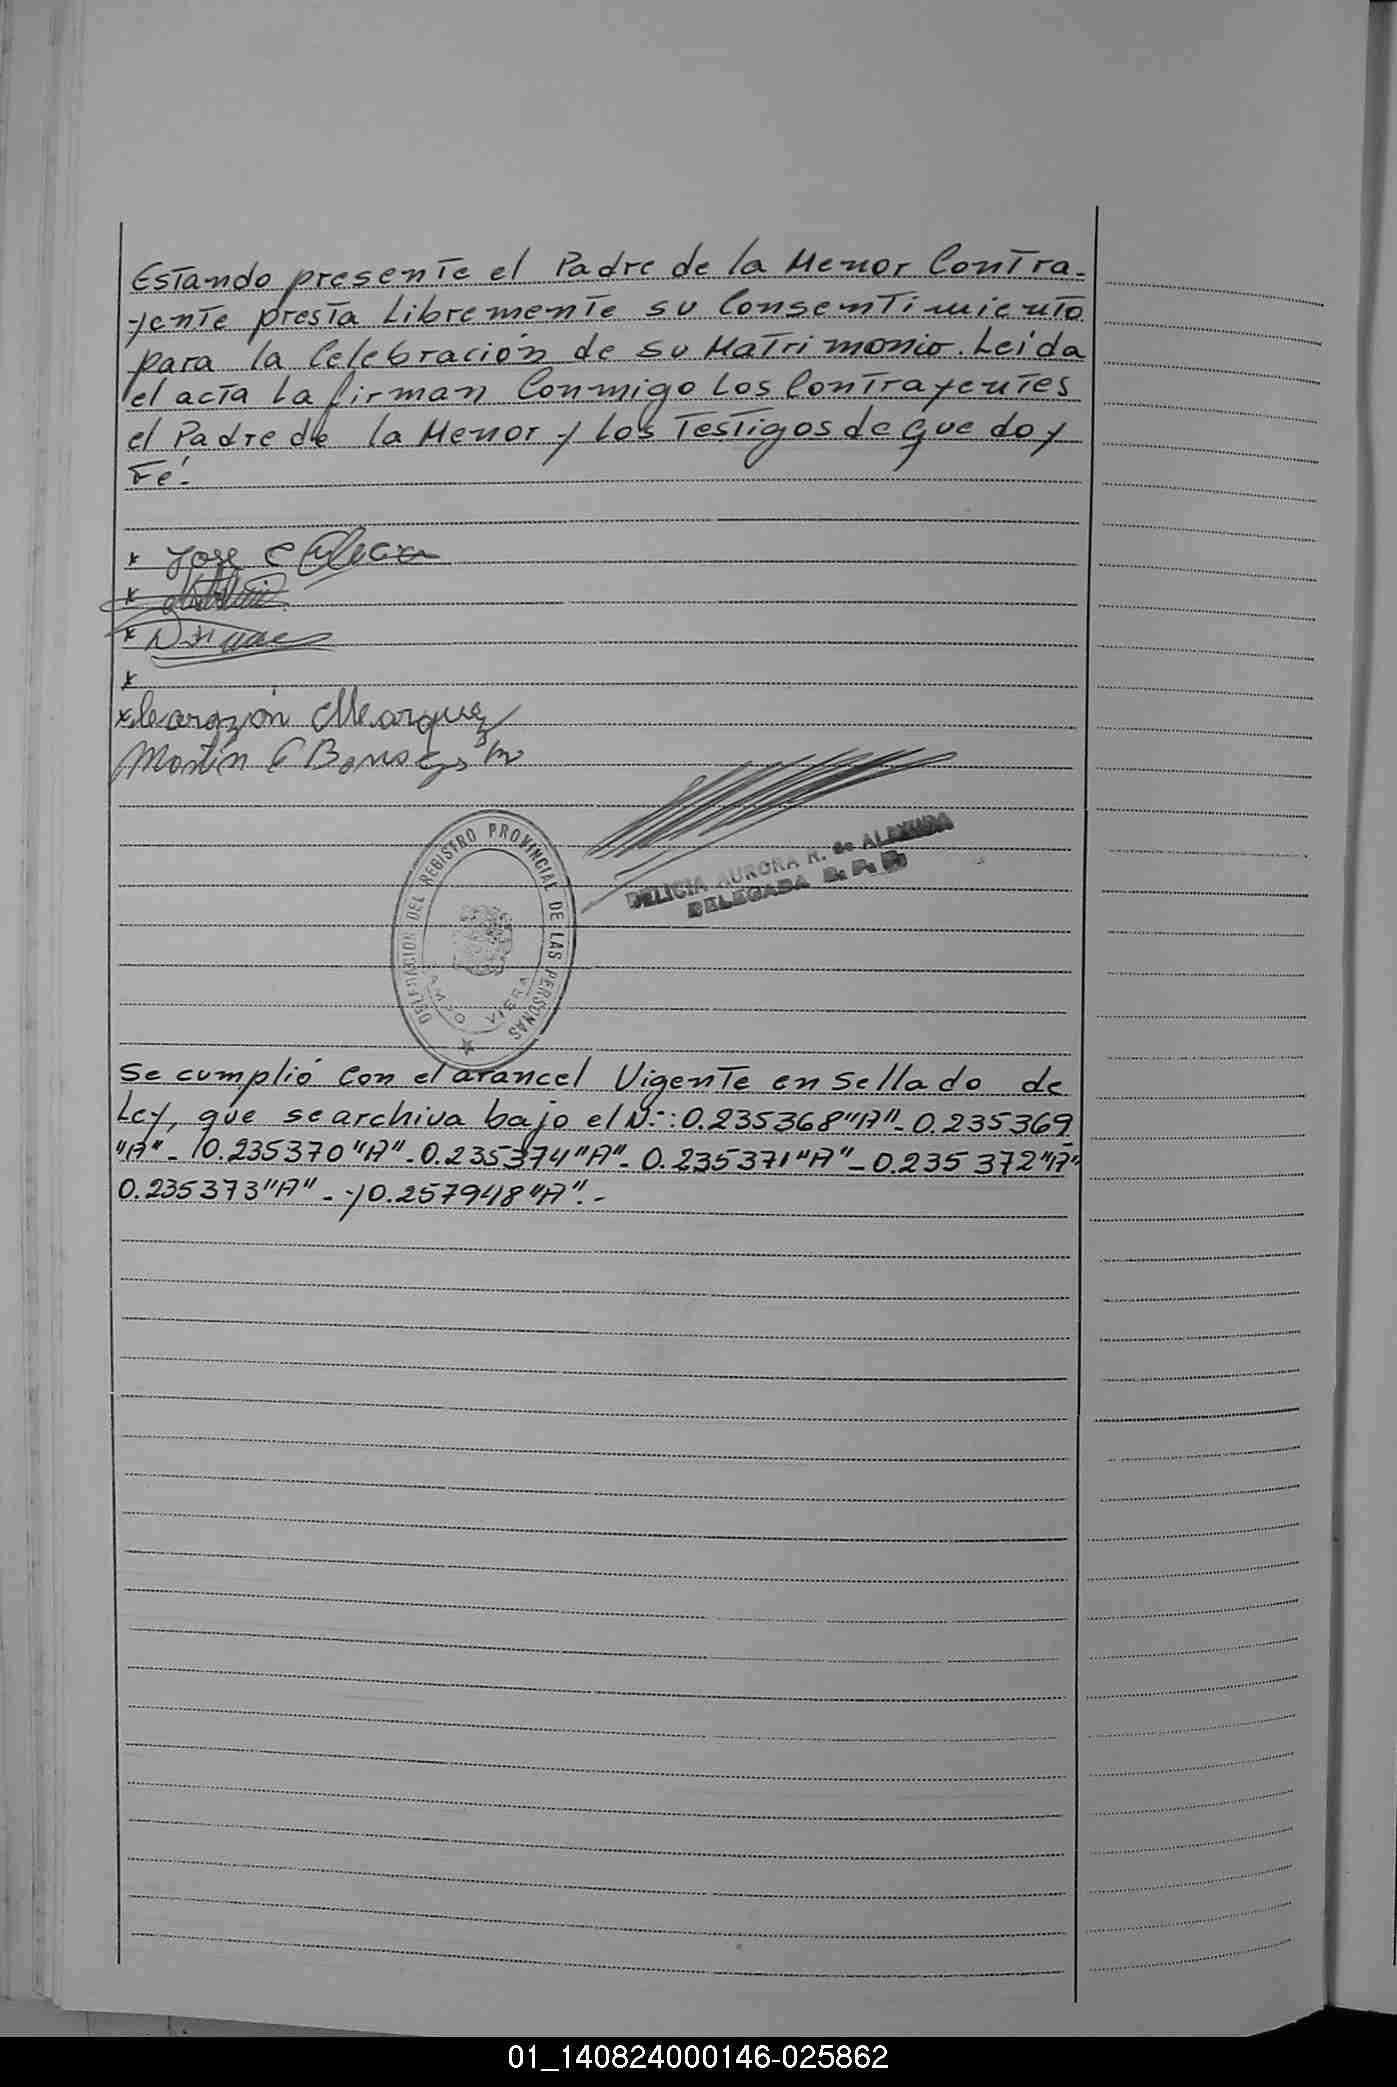 Estando presente el Padre de la Menor Contra-
yente presta Libremente su Consentimiento
para la Celebración de su Matrimonio. Leída
el acta La firman Conmigo Los Contrayentes
el Padre de la Menor y Los Testigos de que doy
Fé.-
* Jose C
*
*
*
* Corazón Marquez
Martín E
DELEGACION DEL REGISTRO PROVINCIAL DE LAS PERSONAS
CAMPO VIERA
DELICIA AURORA R. de
DELEGADA R. P. P.
Se cumplió Con el arancel Vigente en Sellado de
Ley, que se archiva bajo el N.-: 0.235368 "A"- 0.235369
"A" - 0.235370 "A" - 0.235374 "A" - 0.235371 "A" - 0.235372 "A"
0.235373 "A" - y 0.257948 "A" . -
01_140824000146-025862